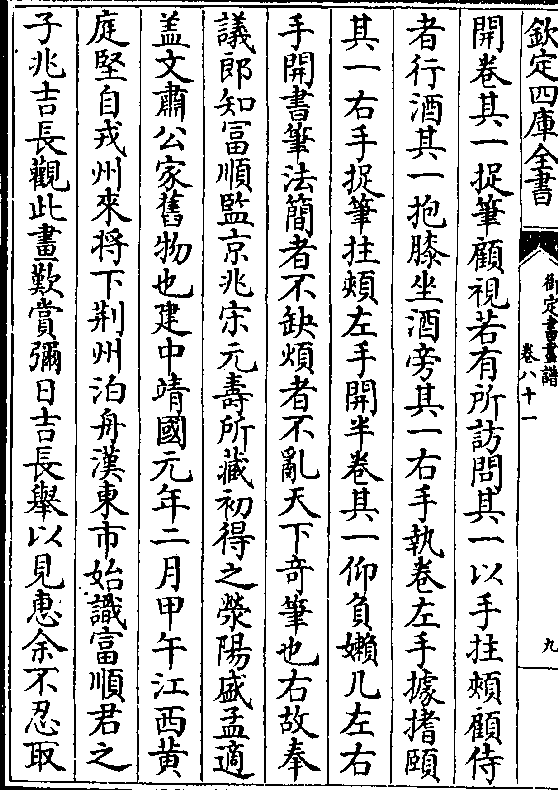 欽定四庫全書
御定書畫譜
卷八十一
九
開卷其一捉筆顧視若有所訪問其一以手拄頰顧侍
者行酒其一抱膝坐酒旁其一右手執卷左手據搘頤
其一右手捉筆拄頰左手開半卷其一仰負嬾几左右
手開書筆法簡者不缺煩者不亂天下竒筆也右故奉
議郎知冨順監京兆宋元壽所藏初得之滎陽盛孟適
盖文肅公家舊物也建中靖國元年二月甲午江西黄
庭堅自戎州來将下荆州泊舟漢東市始識富順君之
子兆吉長觀此畫歎賞彌日吉長舉以見惠余不忍取